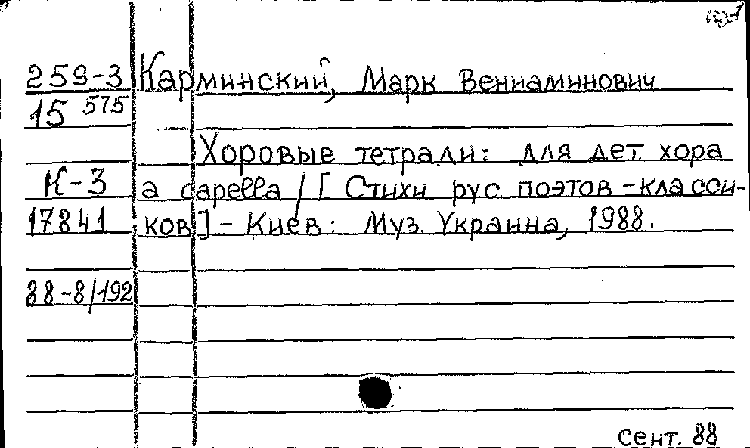 259-3 Карминский, Марк Вениаминович
15 575
Хоровые тетради: для дет. хора
К-3 a capella / [ Стихи рус поэтов-класси-
17841 ков] - Киев: Муз. Украина, 1988.
88-8/192
Сент. 88